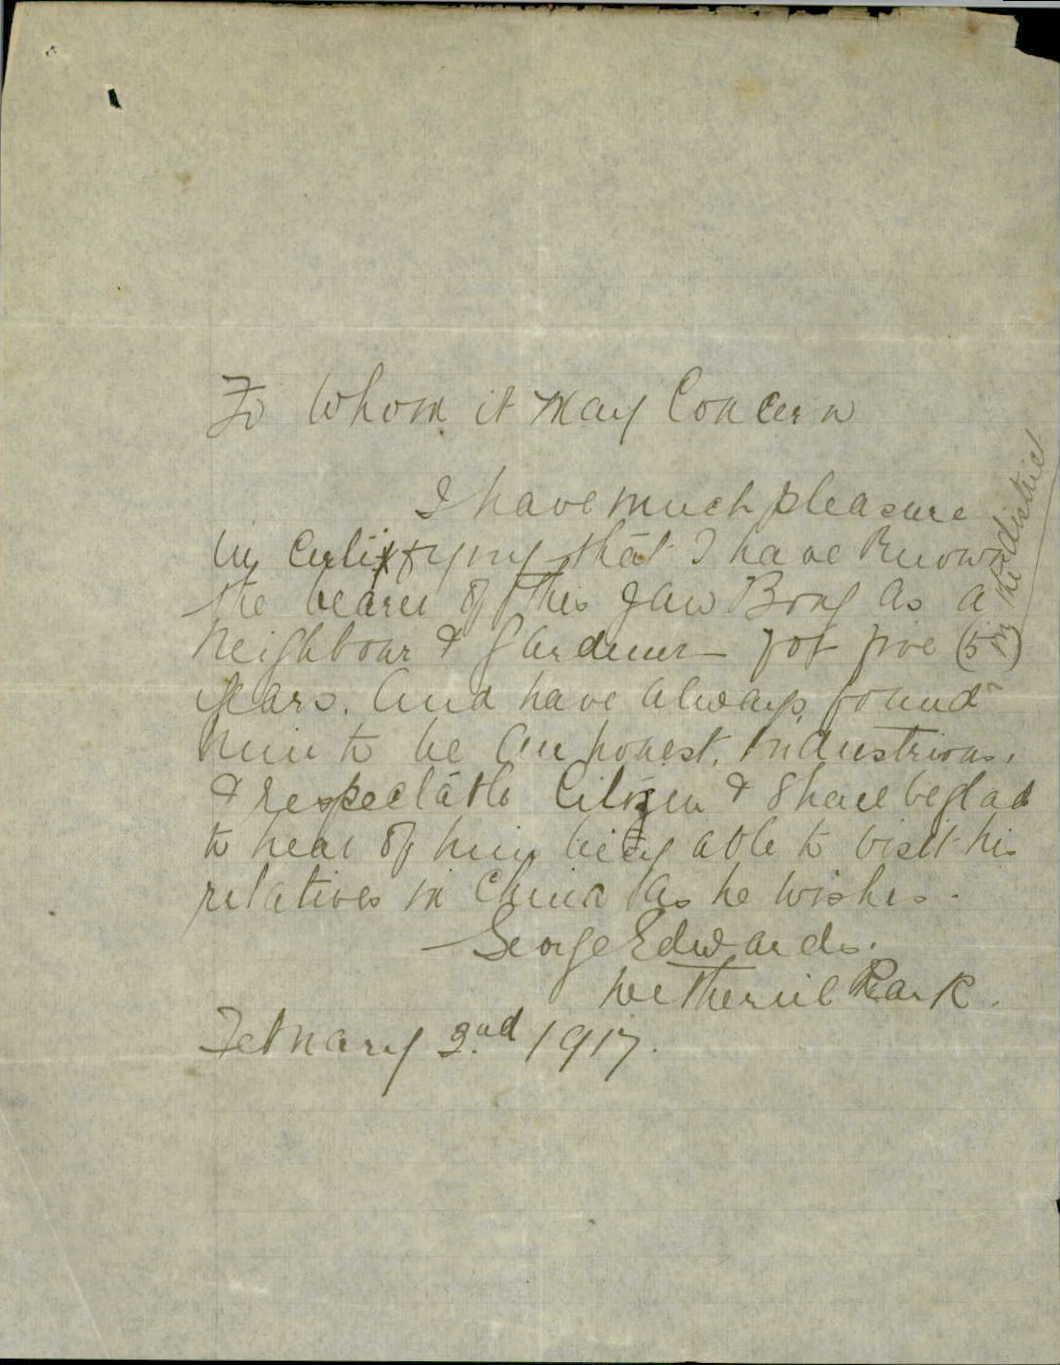 To Whom it May Concern
I have much pleasure
in certifying that I have Known
the bearer of this Jaw Bong as a
Neighbour & Gardener for five (5)
years. And have always found
him to be an honest. Industrious.
& respectable Citizen & Shall be glad
to hear of him being able to visit his
relatives in China as he wishes.
George Edwards.
Wetherill Park.
February 2nd 1917.
in the district